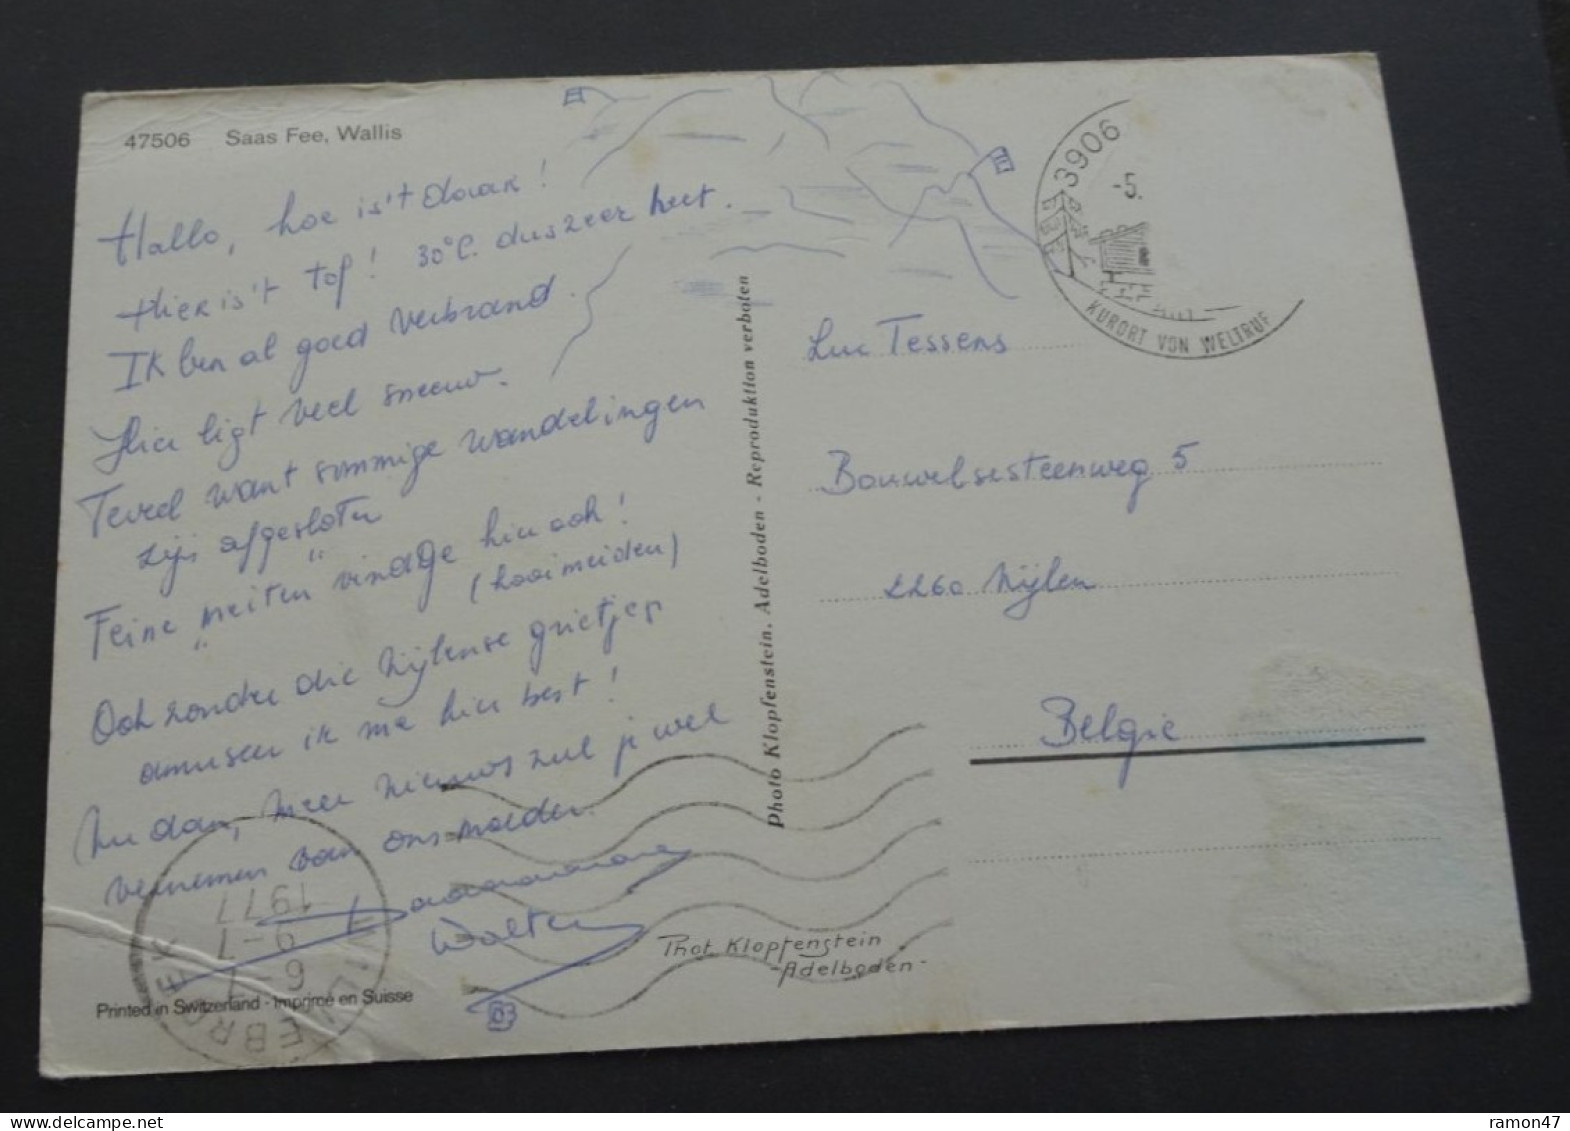 47506 Saas Fee, Wallis
Hallo, hoe is't daar!
Hier is't tof! 30°C. dus zeer heet.
Ik ben al goed verbrand.
Hier ligt veel sneeuw.
Teveel want sommige wandelingen
zijn afgesloten
Feine "meiten" vindt ge hier ook!
(hooimeiden)
Ook zonder die Nijlense grietjes
amuseer ik me hier best!
Nu dan, meer nieuws zul je wel
vernemen van ons moeder.
Walter
Printed in Switzerland - Imprimé en Suisse
Photo Klopfenstein, Adelboden - Reproduktion verboten
Phot. Klopfenstein
-Adelboden-
3906
-5.
KURORT VON WELTRUF
Luc Tessens
Bouwelsesteenweg 5
2260 Nijlen
België
1977
9-7
6-7
ramon47